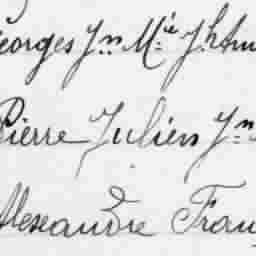 Georges Jn Mie Jh Am
Pierre Julien Jn
Alexandre Fran